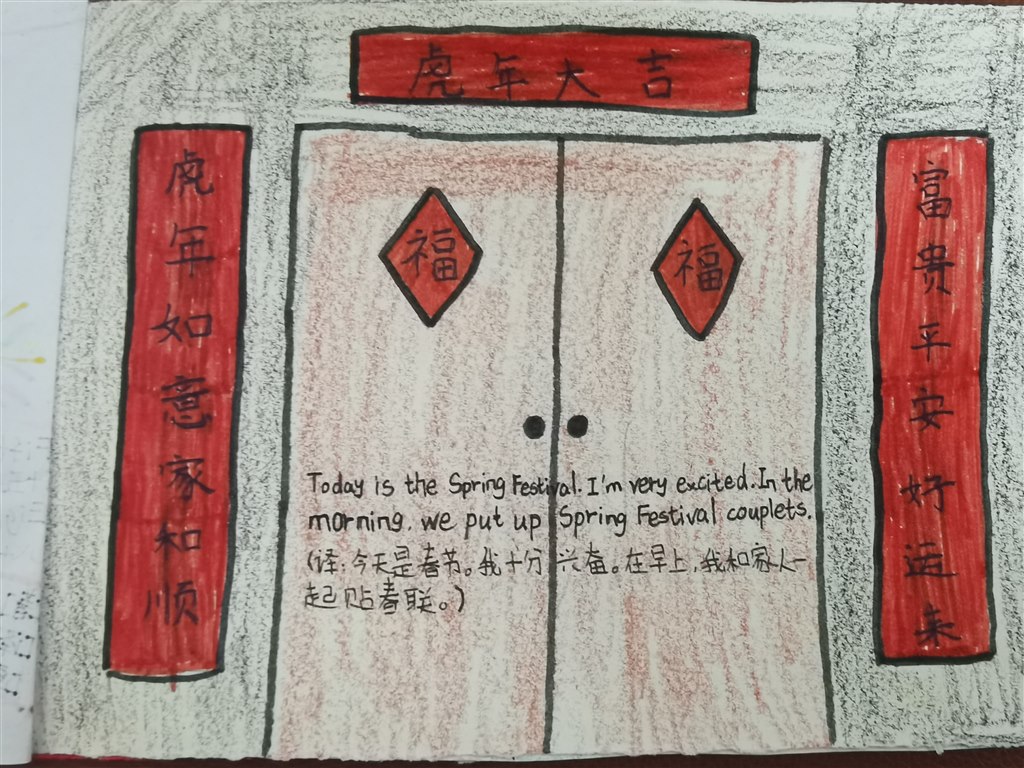 虎年大吉
虎年如意家和顺
富贵平安好运来
福
福
Today is the Spring Festival. I'm very excited. In the
morning, we put up Spring Festival couplets.
(译:今天是春节。我十分兴奋。在早上,我和家人一
起贴春联。)